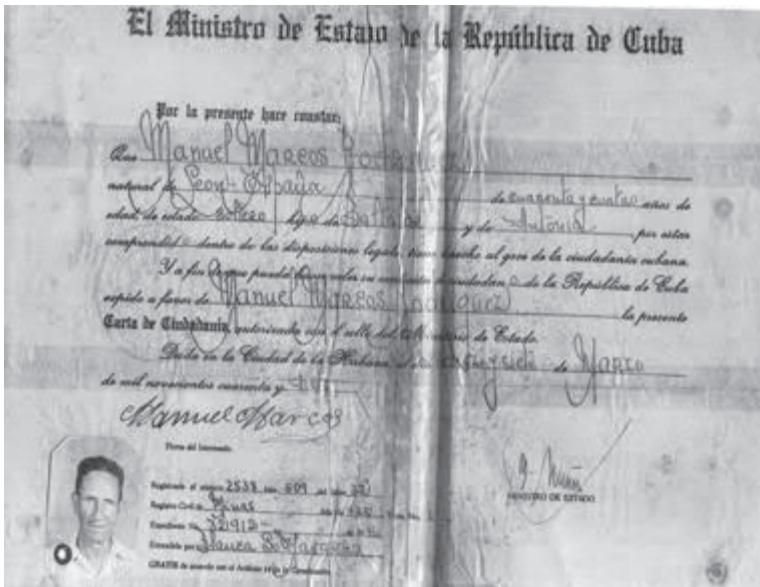 El Ministro de Estado de la República de Cuba
Por la presente hace constar:
Que Manuel Marcos Rodriguez
natural de Leon-España de cuarenta y cuatro años de
edad, de estado soltero hijo de y de Antonia por estar
comprendido dentro de las disposiciones legales, tiene derecho al goce de la ciudadanía cubana.
Y a fin de que pueda hacer valer su condición de ciudadano de la República de Cuba
expido a favor de Manuel Marcos Rodriguez la presente
Carta de Ciudadanía, autorizada con el sello del Ministerio de Estado.
Dada en la Ciudad de la Habana, a de Marzo
de mil novecientos cuarenta y
Manuel Marcos
Firma del Interesado
Registrado al número 2538 folio 609 del libro
Registro Civil de
Expediente No. 32912
Extendida por Blanca
MINISTRO DE ESTADO
GRATIS de acuerdo con el Artículo de la Constitución